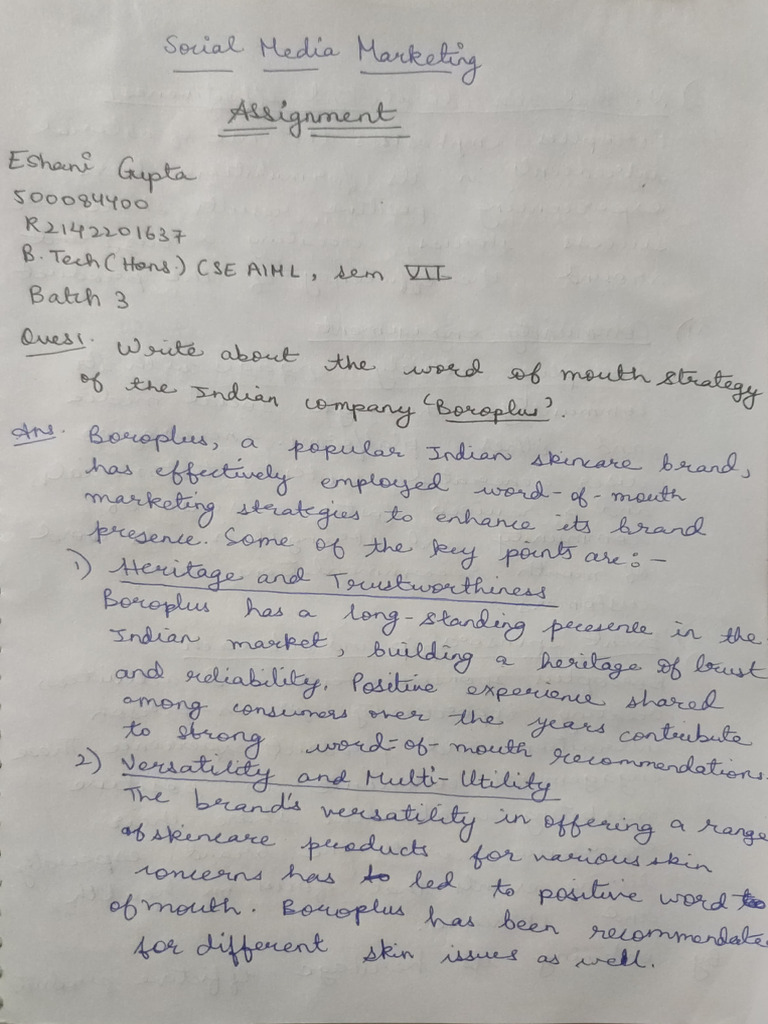 Social Media Marketing
Assignment
Eshani Gupta
500084400
R2142201637
B.Tech (Hons.) CSE AIML, sem VII
Batch 3
Ques1. Write about the word of mouth strategy
of the Indian company 'Boroplus'.
Ans. Boroplus, a popular Indian skincare brand,
has effectively employed word-of-mouth
marketing strategies to enhance its brand
presence. Some of the key points are:-
1) Heritage and Trustworthiness
Boroplus has a long-standing presence in the
Indian market, building a heritage of trust
and reliability. Positive experience shared
among consumers over the years contribute
to strong word-of-mouth recommendations.
2) Versatility and Multi-Utility
The brand's versatility in offering a range
of skincare products for various skin
concerns has led to positive word
of mouth. Boroplus has been recommended
for different skin issues as well.